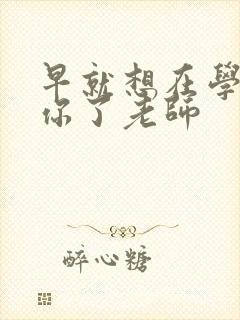 早就想在學
你了老師
醉心糖